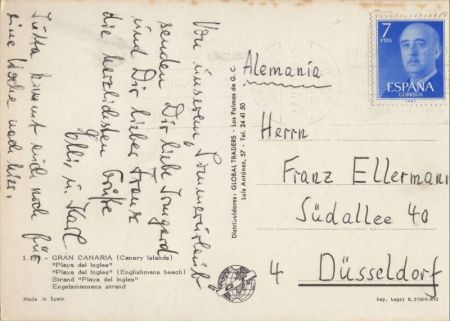 Von unserem Sommerurlaub
senden Dir liebe Irmgard
und Dir lieber Franz
die herzlichsten Grüße
Elli u. Karl
Jutta kommt auch noch für
eine Woche nach hier.
1. GRAN CANARIA (Canary Islands)
"Playa del Ingles"
"Playa del Ingles" (Englishmans beach)
Strand "Playa del Ingles"
Engelsmannens strand
Made in Spain
Distribuidores: GLOBAL TRADERS - Las Palmas de G. C.
Luis Antúnez, 57 - Tel. 24 41 50
7
PTAS
ESPAÑA
CORREOS
Alemania
Herrn
Franz Ellermann
Südallee 40
4 Düsseldorf
Dep. Legal B.